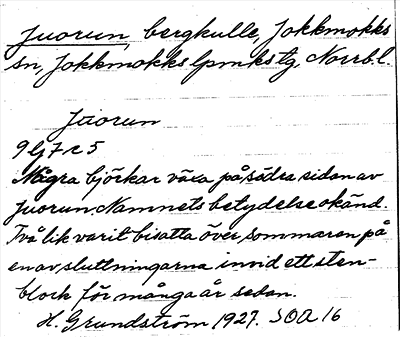 Juorun, bergkulle, Jokkmokks
sn, Jokkmokks lpmks tg, Norrb. l.
Jùorun
9 Gj 7 c 5
Några björkar växa på södra sidan av
Juorun. Namnets betydelse okänd.
Två lik varit bisatta över sommaren på
en av sluttningarna invid ett sten-
block för många år sedan.
H. Grundström 1927. SOA 16